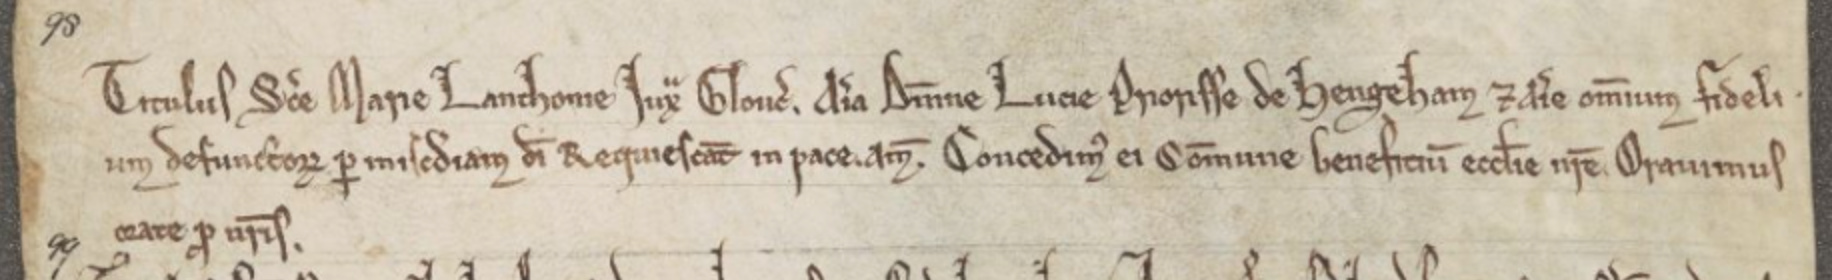 98
Titulus Sc̄e Marie Lanthonie Jux̄ Glouc̄. Aīa Dn̄ne Lucie Priorisse de Hengeham ⁊ aīe om̄ium fideli
um defunctoꝝ ꝑ misc̄diam dī Requiescāt in pace. Am̄. Concedimꝰ ei Com̄une beneficiū eccl̄ie nr̄e. Orauimus
orate ꝓ nr̄is.
99